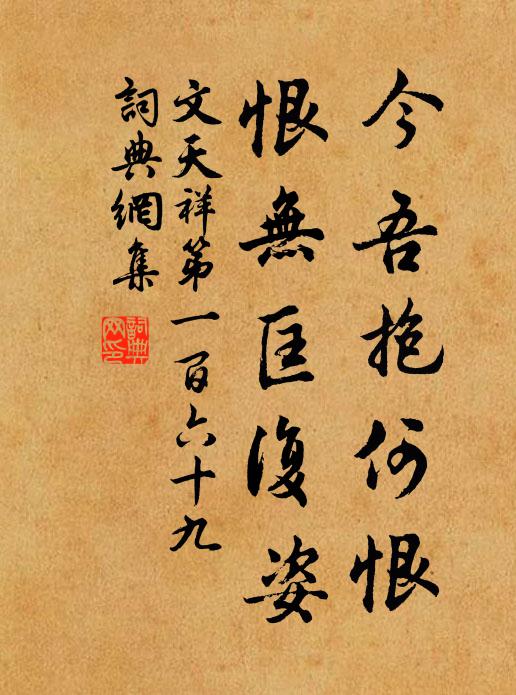 今吾抱何恨
恨無匡復姿
文天祥第一百六十九
詞典網集
詞典網印